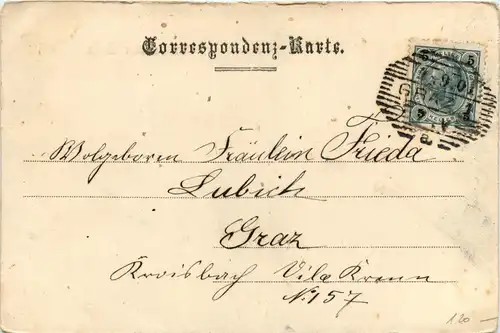 Correspondenz-Karte.
5 5
Wolgeboren Fräulein Frieda
Lubich
Graz
Kroisbach Vila Krenn
Nº 157
1.20 —